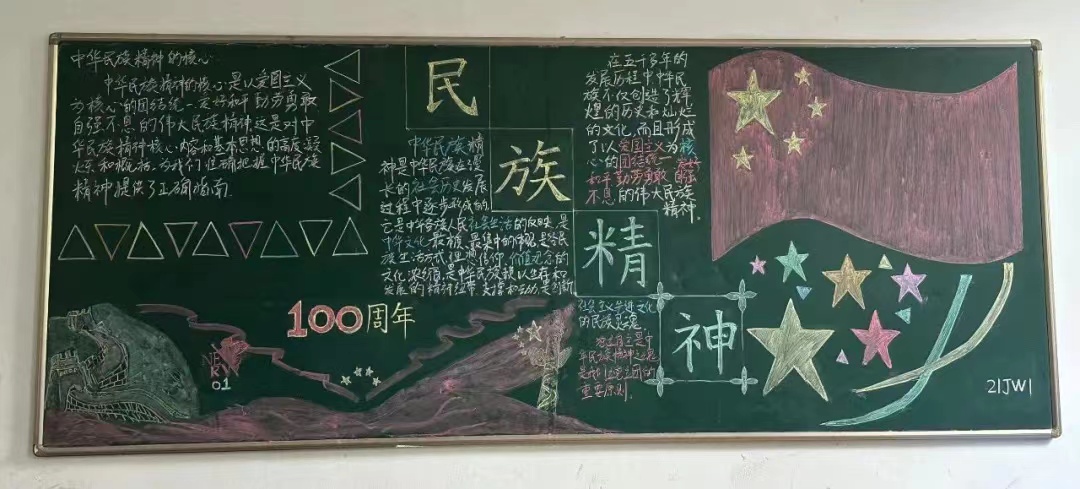 中华民族精神的核心
中华民族精神的核心是以爱国主义
为核心的团结统一友好和平勤劳勇敢
自强不息的伟大民族精神.这是对中
华民族精神核心内容和基本思想的高度凝
炼和概括.为我们准确把握中华民族
精神提供了正确指南.
民
族
精
神
中华民族精
神是中华民族在漫
长的社会历史发展
过程中逐步形成的
它是中华各族人民社会生活的反映,是
中华文化最本质,最集中的体现,是各民
族生活方式,理想信仰,价值观念的
文化浓缩,是中华民族赖以生存和
发展的精神纽带,支撑和动力,是创新
社会主义先进文化
的民族灵魂.
独立自主是中
华民族精神之魂
是我们立党立国的
重要原则
在五千多年的
发展历程中中华民
族不仅创造了辉
煌的历史和灿烂
的文化,而且形成
了以爱国主义为核
心的团结统一友好
和平勤劳勇敢自强
不息的伟大民族
精神.
100周年
01
21JW1